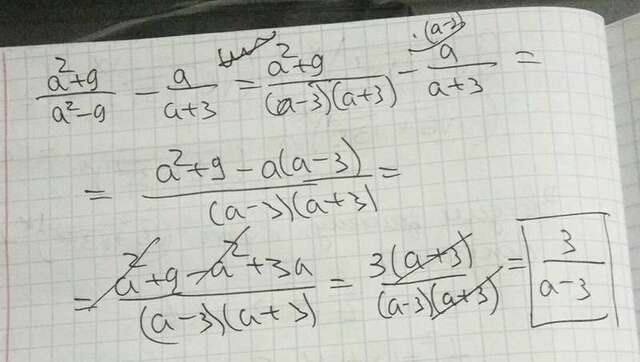 (a²+9)/(a²-9) - a/(a+3) = (a²+9)/((a-3)(a+3)) - a·(a-3)/(a+3) =
= (a²+9-a(a-3))/((a-3)(a+3)) =
= (a²+9-a²+3a)/((a-3)(a+3)) = 3(a+3)/((a-3)(a+3)) = 3/(a-3)